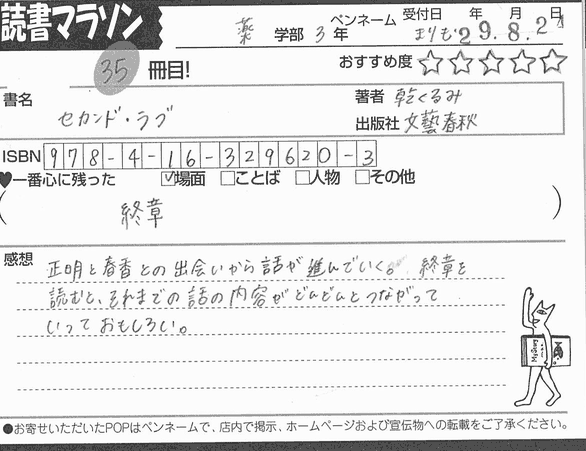 読書マラソン
薬 学部 3 年
ペンネーム まりも
受付日 年 月 日
29.8.2
35 冊目!
おすすめ度 ☆☆☆☆☆
書名 セカンド・ラブ
著者 乾くるみ
出版社 文藝春秋
ISBN 978-4-16-329620-3
♥一番心に残った ☑場面 □ことば □人物 □その他
( 終章 )
感想 正明と春香との出会いから話が進んでいく。終章を
読むと、それまでの話の内容がどんどんとつながって
いっておもしろい。
●お寄せいただいたPOPはペンネームで、店内で掲示、ホームページおよび宣伝物への転載をご了承ください。